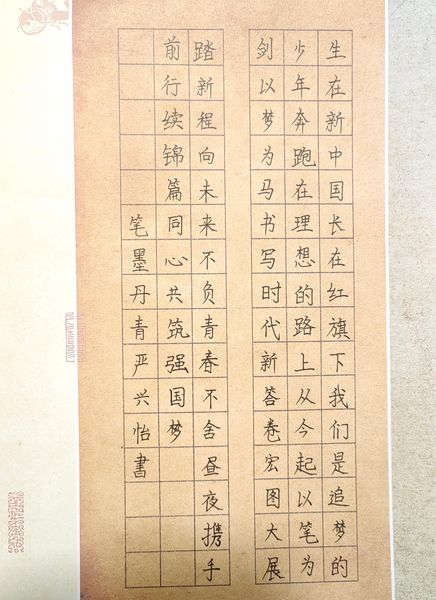 生在新中国长在红旗下我们是追梦的
少年奔跑在理想的路上从今起以笔为
剑以梦为马书写时代新答卷宏图大展
踏新程向未来不负青春不舍昼夜携手
前行续锦篇同心共筑强国梦
笔墨丹青严兴怡書